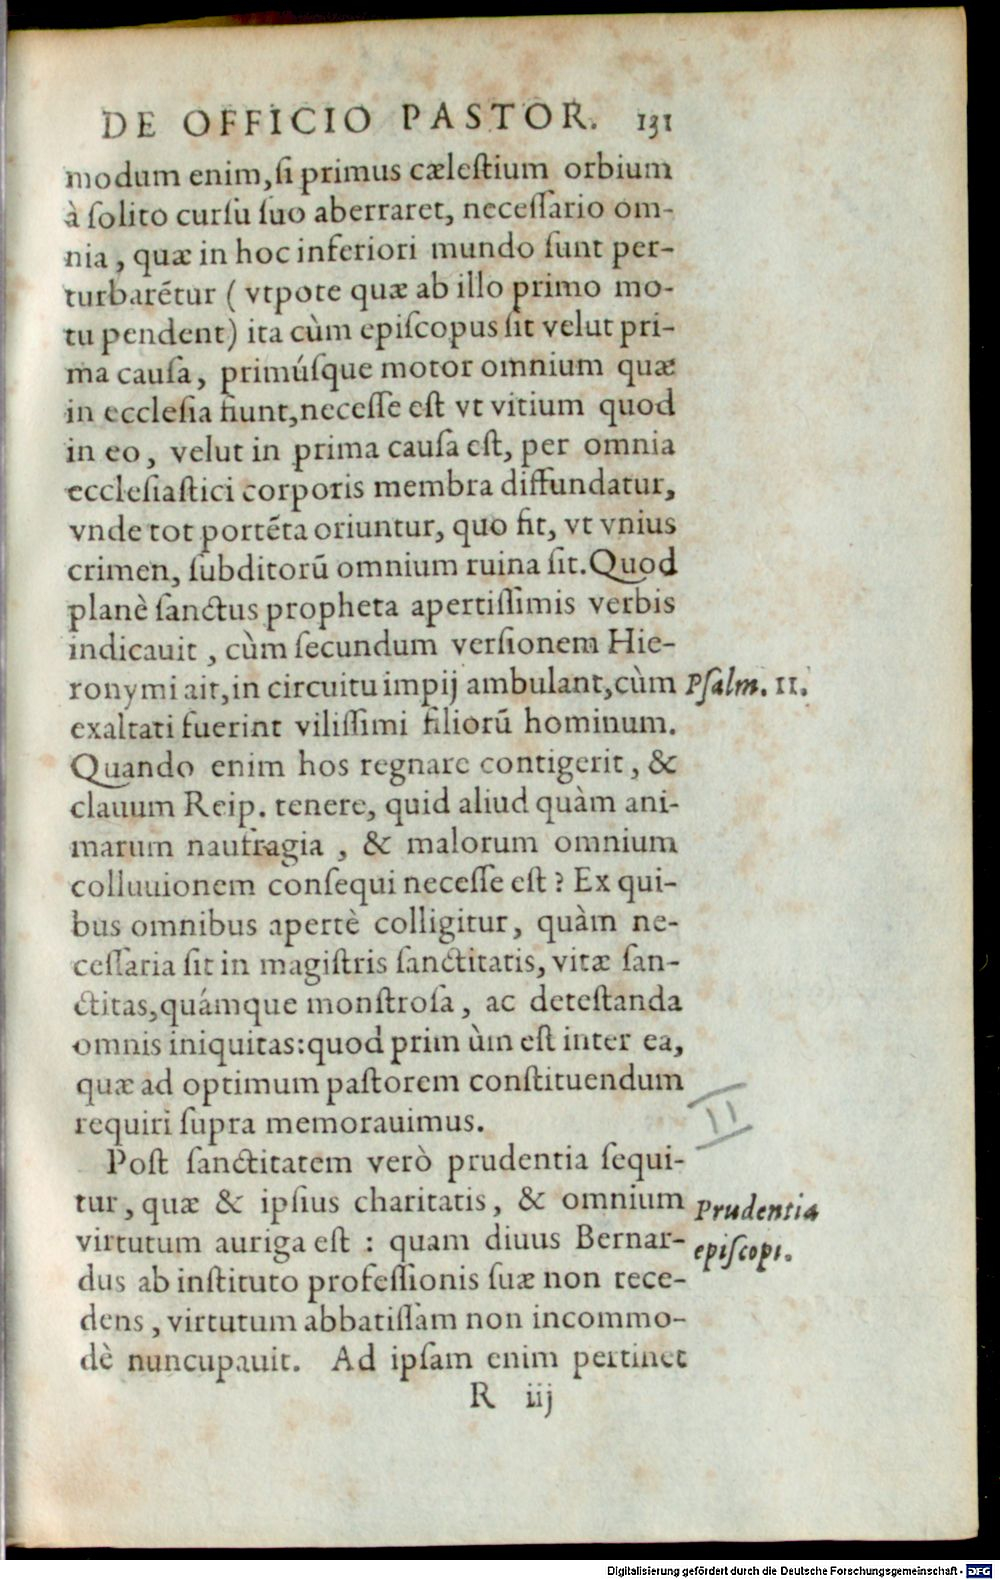 DE OFFICIO PASTOR. 131
modum enim, ſi primus cæleſtium orbium
à ſolito curſu ſuo aberraret, neceſſario om-
nia, quæ in hoc inferiori mundo ſunt per-
turbarẽtur ( vtpote quæ ab illo primo mo-
tu pendent) ita cùm epiſcopus ſit velut pri-
ma cauſa, primúſque motor omnium quæ
in eccleſia fiunt, neceſſe eſt vt vitium quod
in eo, velut in prima cauſa eſt, per omnia
eccleſiaſtici corporis membra diffundatur,
vnde tot portẽta oriuntur, quo fit, vt vnius
crimen, ſubditorũ omnium ruina ſit. Quod
planè ſanctus propheta apertiſſimis verbis
indicauit, cùm ſecundum verſionem Hie-
ronymi ait, in circuitu impij ambulant, cùm
Pſalm. 11.
exaltati fuerint viliſſimi filiorũ hominum.
Quando enim hos regnare contigerit, &
clauum Reip. tenere, quid aliud quàm ani-
marum naufragia , & malorum omnium
colluuionem conſequi neceſſe eſt? Ex qui-
bus omnibus apertè colligitur, quàm ne-
ceſſaria ſit in magiſtris ſanctitatis, vitæ ſan-
ctitas, quámque monſtroſa, ac deteſtanda
omnis iniquitas: quod prim ùm eſt inter ea,
quæ ad optimum paſtorem conſtituendum
requiri ſupra memorauimus.
II
Poſt ſanctitatem verò prudentia ſequi-
tur, quæ & ipſius charitatis, & omnium
Prudentia
virtutum auriga eſt : quam diuus Bernar-
epiſcopi.
dus ab inſtituto profeſſionis ſuæ non rece-
dens, virtutum abbatiſſam non incommo-
dè nuncupauit. Ad ipſam enim pertinet
R iij
Digitalisierung gefördert durch die Deutsche Forschungsgemeinschaft - DFG